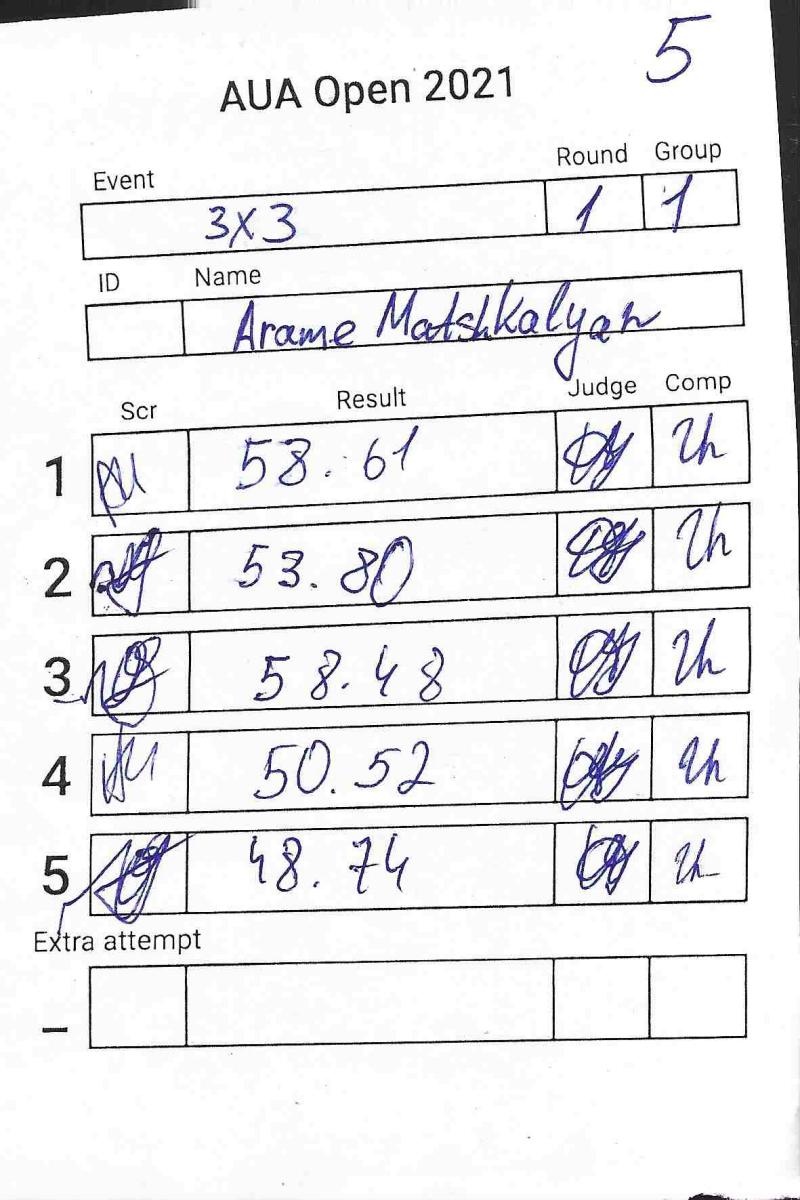 5
AUA Open 2021
Event Round Group
3x3 1 1
ID Name
Arame Matshkalyan
Scr Result Judge Comp
1 58.61
2 53.80
3 58.48
4 50.52
5 48.74
Extra attempt
–